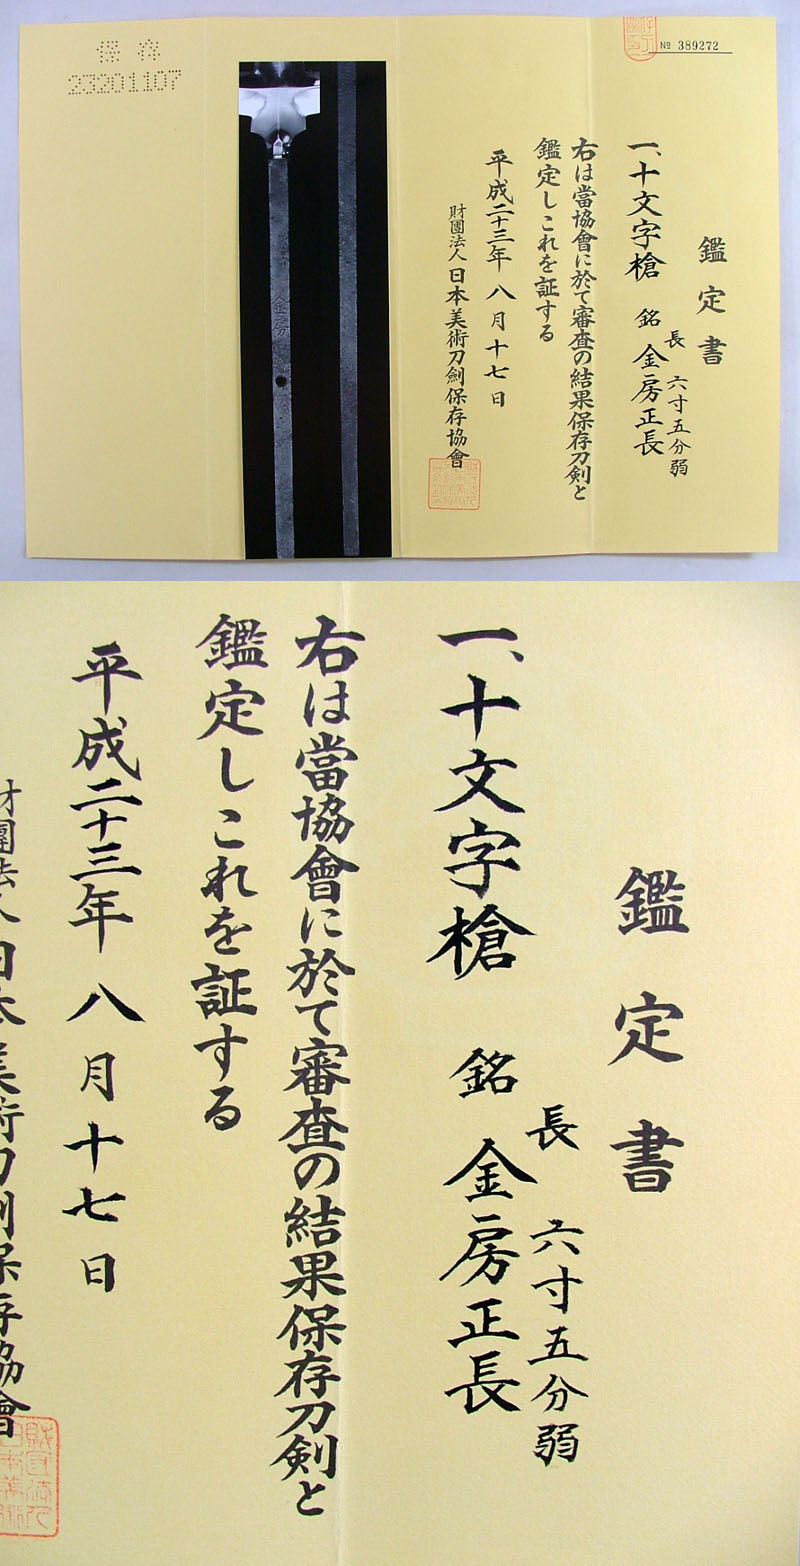 保存
23201107
No 389272
鑑定書
一、十文字槍 銘 金房正長
長 六寸五分弱
右は當協會に於て審査の結果保存刀剣と
鑑定しこれを証する
平成二十三年八月十七日
財團法人日本美術刀劍保存協會
金房
鑑定書
長 六寸五分弱
一、十文字槍 銘 金房正長
右は當協會に於て審査の結果保存刀剣と
鑑定しこれを証する
平成二十三年八月十七日
財團法人日本美術刀劍保存協會